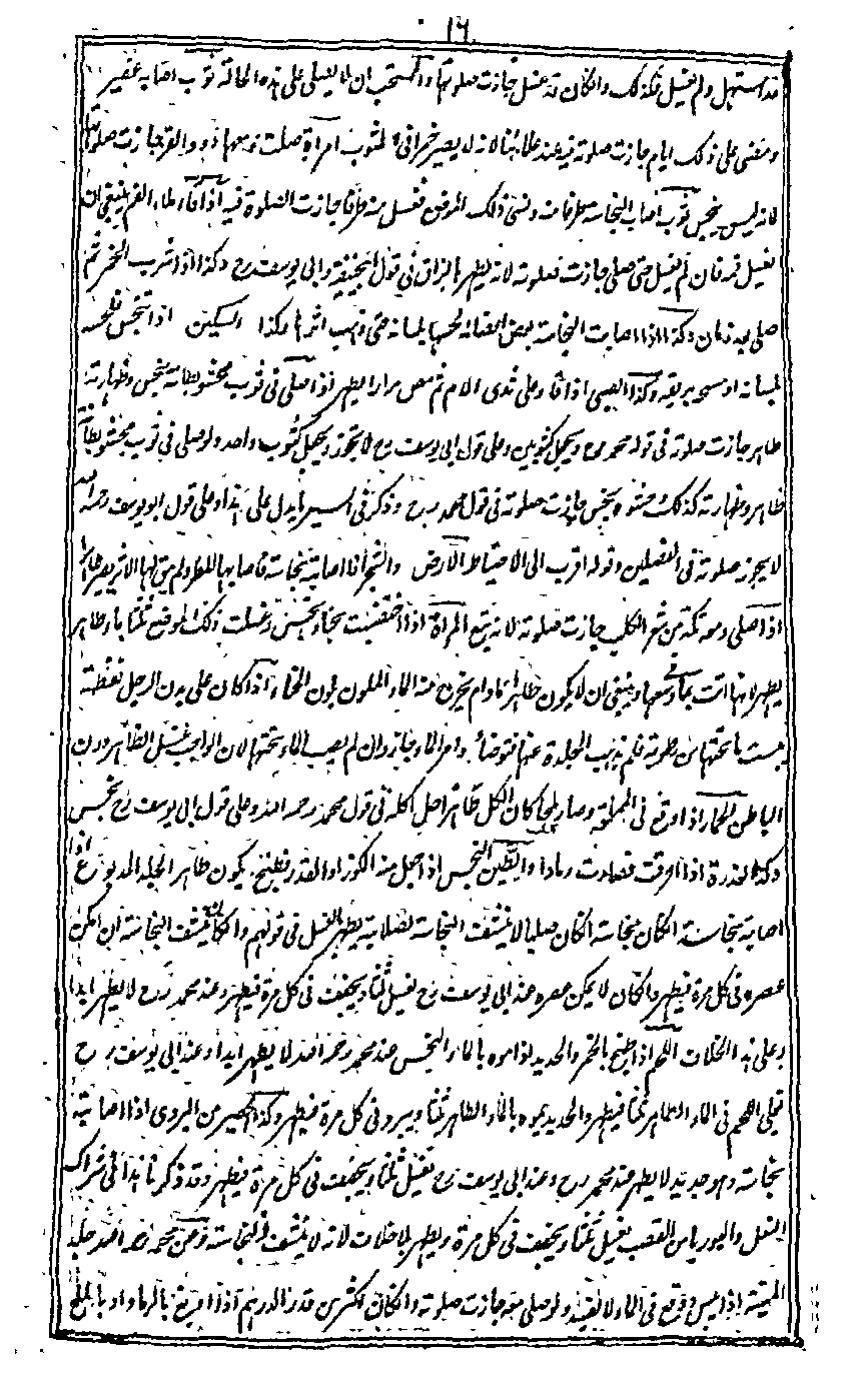 ١٦
قد استهل ولم يغسل فكذلك وان كان قد غسل جازت صلوته والمستحب ان لا يصلي على هذه الحالة ثوب اصابه عصير
ومضى على ذلك ايام جازت صلوته فيه عند علمائنا لانه لا يصير خمرا في الثوب امرأة صلت ومعها دود القز جازت صلوتها
لانه ليس بنجس ثوب اصاب النجاسة طرفا منه ونسي ذلك الموضع فغسل منه طرفا جازت الصلوة فيه اذا قاء ملء الفم ينبغي ان
يغسل فمه فان لم يغسل حتى صلى جازت صلوته لانه يطهر بالبزاق في قول ابي حنيفة وابي يوسف رح وكذا اذا شرب الخمر ثم
صلى بعد زمان وكذا اذا اصابت النجاسة بعض اعضائه لحسها بلسانه حتى ذهب اثرها وكذا السكين اذا تنجس فلحسه
بلسانه او مسحه بريقه وكذا الصبي اذا قاء على ثدي الام ثم مص مرارا يطهر اذا صلى في ثوب محشو بطانته نجس وظهارته
طاهر جازت صلوته في قول محمد رح ويجعل كثوبين وعلى قول ابي يوسف رح لا يجوز ويجعل كثوب واحد ولو صلى في ثوب محشو بطانته
طاهر وظهارته كذلك وحشوه نجس جازت صلوته في قول محمد رح وذكر في السير ما يدل على هذا وعلى قول ابو يوسف رحمه الله
لا يجوز صلوته في الفصلين وقوله اقرب الى الاحتياط الارض والشجر اذا اصابته نجاسة فاصابها المطر ولم يبق لها الاثر يصير طاهرا
اذا صلى ومعه تكة من شعر الكلب جازت صلوته لانه ينتفع المرأة اذا اختضبت بحناء نجس وغسلت ذلك الموضع ثلثا بماء طاهر
يطهر لانها اتت بما في وسعها وينبغي ان لا يكون طاهرا ما دام يخرج منه الماء الملون بلون الحناء اذا كان على بدن الرجل نفطة
يبست ما تحتها من رطوبة فلم يذهب الجلدة عنها فتوضأ وامر الماء جاز وان لم يصب الماء تحتها لان الواجب غسل الظاهر دون
الباطن الحمار اذا وقع في المملحة وصار ملحا كان الكل طاهرا حل اكله في قول محمد رحمه الله وعلى قول ابي يوسف رح نجس
وكذا العذرة اذا احرقت فصارت رمادا والطين النجس اذا جعل منه الكوز او القدر فطبخ يكون طاهر الجلد المدبوغ اذا
اصابه نجاسة ان كان صلبا لا ينشف النجاسة لصلابته يطهر بالغسل في قولهم وان كان ينشف النجاسة ان امكن
عصره في كل مرة فيطهر وان كان لا يمكن عصره عند ابي يوسف رح يغسل ثلثا ويجفف في كل مرة فيطهر وعند محمد رح لا يطهر ابدا
وعلى هذا الخلاف اللحم اذا طبخ بالخمر والحديد اذا موه بالماء النجس عند محمد رحمه الله لا يطهر ابدا وعند ابي يوسف رح
يغلى اللحم في الماء الطاهر ثلثا فيطهر والحديد يموه بالماء الطاهر ثلثا ويبرد في كل مرة فيطهر وكذا الحصير من البردى اذا اصابته
نجاسة وهو جديد لا يطهر عند محمد رح وعند ابي يوسف رح يغسل ثلثا ويجفف في كل مرة فيطهر وقد ذكرنا هذا في شراك
النعل والبوريا من القصب يغسل ثلثا ويجفف في كل مرة ويطهر بلا خلاف لانه لا ينشف النجاسة وعن محمد رحمه الله جلد
الميتة اذا يبس ووقع في الماء لا يفسد ولو صلى معه جازت صلوته وان كان اكثر من قدر الدرهم اذا دبغ بالرماد او بالملح